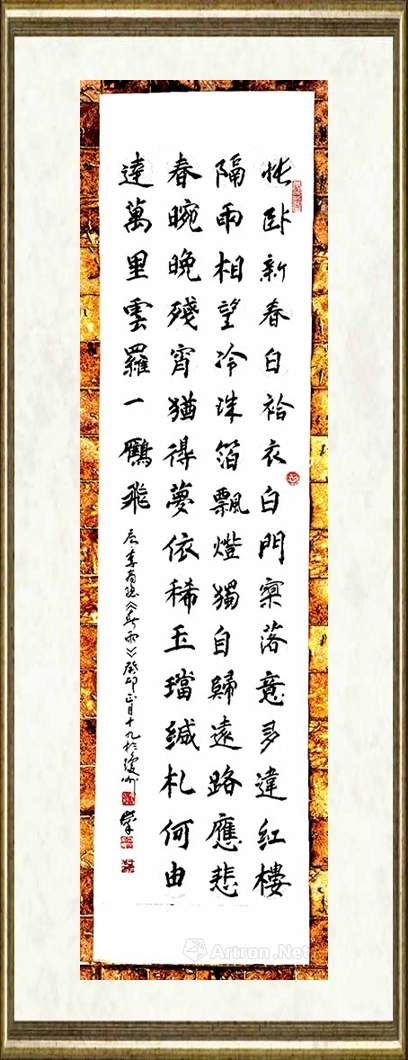 怅卧新春白袷衣白門寥落意多違紅樓
隔雨相望冷珠箔飄燈獨自歸遠路應悲
春晼晚殘宵猶得夢依稀玉璫緘札何由
達萬里雲羅一雁飛
唐李商隐《春雨》癸卯正月十九於
Artron.Net